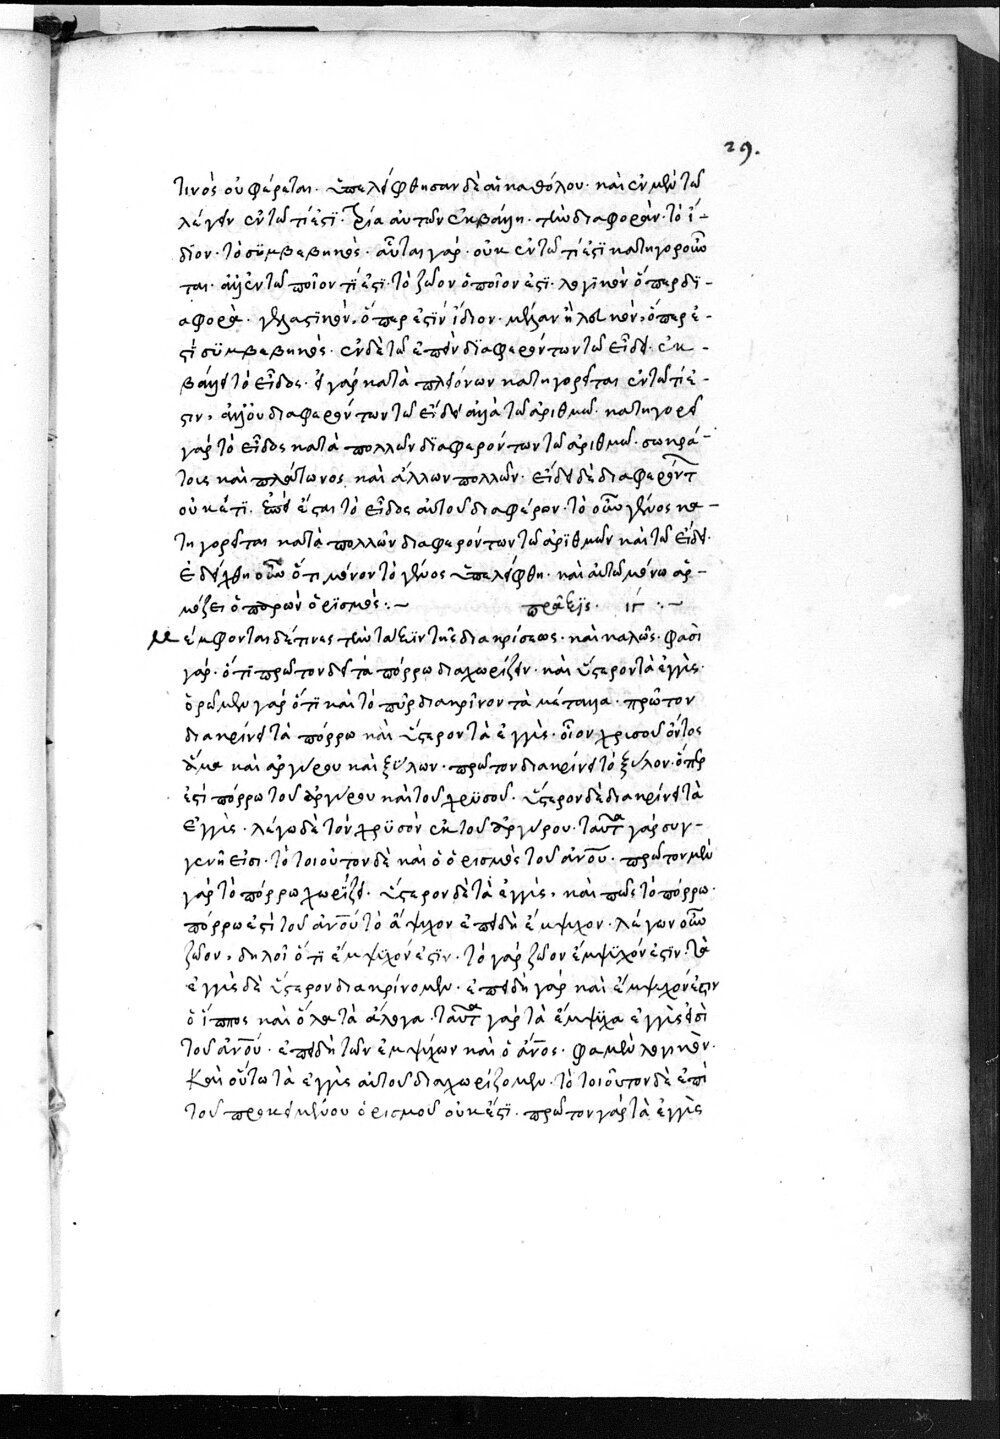 29.
τινὸς οὐ φέρεται. ὑπελείφθησαν δὲ αἱ καθόλου. καὶ ἐν μὲν τῶ
λέγειν ἐν τῶ τί ἐστϊ. τρία αὐτῶν ἐκβάλλει. τὴν διαφορὰν. τὸ ἴ-
διον. τὸ σϋμβεβηκὸς. αὗται γάρ. οὐκ ἐν τῶ τί ἐστϊ κατηγοροῦν
ται. ἀλλ' ἐν τῶ ποῖον τί ἐστϊ. τὸ ζῶον ὁποῖον ἐστϊ. λογϊκὸν ὅπερ δϊ-
αφορὰ. γελαστϊκὸν, ὅπερ ἐστϊν ἴδιον. μέλαν ἢ λευκὸν, ὅπερ ἐ-
στὶ σϋμβεβηκὸς. ἐν δὲ τῶ εἰπεῖν δϊαφερόντων τῶ εἴδει. ἐκ-
βάλλει τὸ εἶδος. εἰ γὰρ κατὰ πλειόνων κατηγορεῖται ἐν τῶ τί ἐ-
στιν, ἀλλ' οὐ διαφερόντων τῶ εἴδει ἀλλὰ τῶ ἀριθμῶ. κατηγορεῖ
γὰρ τὸ εἶδος κατὰ πολλῶν δϊαφερόντων τῶ ἀριθμῶ. σωκρά-
τοις καὶ πλάτωνος καὶ ἄλλων πολλῶν. εἴδει δὲ διαφερόντ
οὐκέτι. ἐπεὶ ἔσται τὸ εἶδος αὐτοῦ διαφέρον. τὸ οὖν γένος κα-
τηγορεῖται κατὰ πολλῶν διαφερόντων τῶ ἀρϊθμῶ καὶ τῶ εἴδει.
ἐδείχθη οὖν ὅτι μόνον τὸ γένος ὑπελείφθη. καὶ αὐτῶ μόνω ἁρ-
μόζει ὁ παρὼν ὁρϊσμὸς :~ πρᾶξϊς. ιγ :~
μέμφονται δέ τινες τὴν τάξϊν τῆς διακρίσεως. καὶ καλῶς. φασὶ
γάρ. ὅτι πρῶτον δεῖ τὰ πόρρω διαχωρίζειν. καὶ ὕστερον τὰ ἐγγὺς.
ὁρῶμεν γὰρ ὅτϊ καὶ τὸ πῦρ διακρῖνον τὰ μέταλλα. πρῶτον
διακρίνει τὰ πόρρω καὶ ὕστερον τὰ ἐγγὺς. οἷον χρυσοῦ ὄντος
ἅμα καὶ ἀργύρου καὶ ξύλων. πρῶτον διακρίνει τὸ ξύλον. ὅπερ
ἐστὶ πόρρω τοῦ ἀργύρου καὶ τοῦ χρϋσοῦ. ὕστερον δὲ διακρίνει τὰ
ἐγγὺς. λέγω δὲ τὸν χρϋσὸν ἐκ τοῦ ἀργύρου. ταῦτα γὰρ συγ-
γενῆ εἰσι. τὸ τοιοῦτον δὲ καὶ ὁ ὁρισμὸς τοῦ ἀνου. πρῶτον μὲν
γὰρ τὸ πόρρω χωρίζει. ὕστερον δὲ τὰ ἐγγὺς, καὶ πῶς τὸ πόρρω.
πόρρω ἐστὶ τοῦ ἀνου τὸ ἄψυχον ἐπειδὴ ἔμψυχον. λέγων οὖν
ζῶον, δηλοῖ ὅτϊ ἔμψϋχόν ἐστϊν. τὸ γὰρ ζῶον ἔμψϋχόν ἐστϊν. τὰ
ἐγγὺς δὲ ὕστερον διακρίνομεν. ἐπειδὴ γὰρ καὶ ἔμψυχόν ἐστιν
ὁ ἵππος καὶ ὅλα τὰ ἄλογα. ταῦτα γὰρ τὰ ἔμψϋχα ἐγγὺς εἰσὶ
τοῦ ἀνου. ἐπειδὴ τῶν ἐμψύχων καὶ ὁ ἀνος. φαμὲν λογικὸν.
καὶ οὕτω τὰ ἐγγὺς αὐτοῦ διαχωρίζομεν. τὸ τοιοῦτον δὲ ἐπὶ
τοῦ προκειμένου ὁρισμοῦ οὐκ ἔστϊ. πρῶτον γὰρ τὰ ἐγγὺς